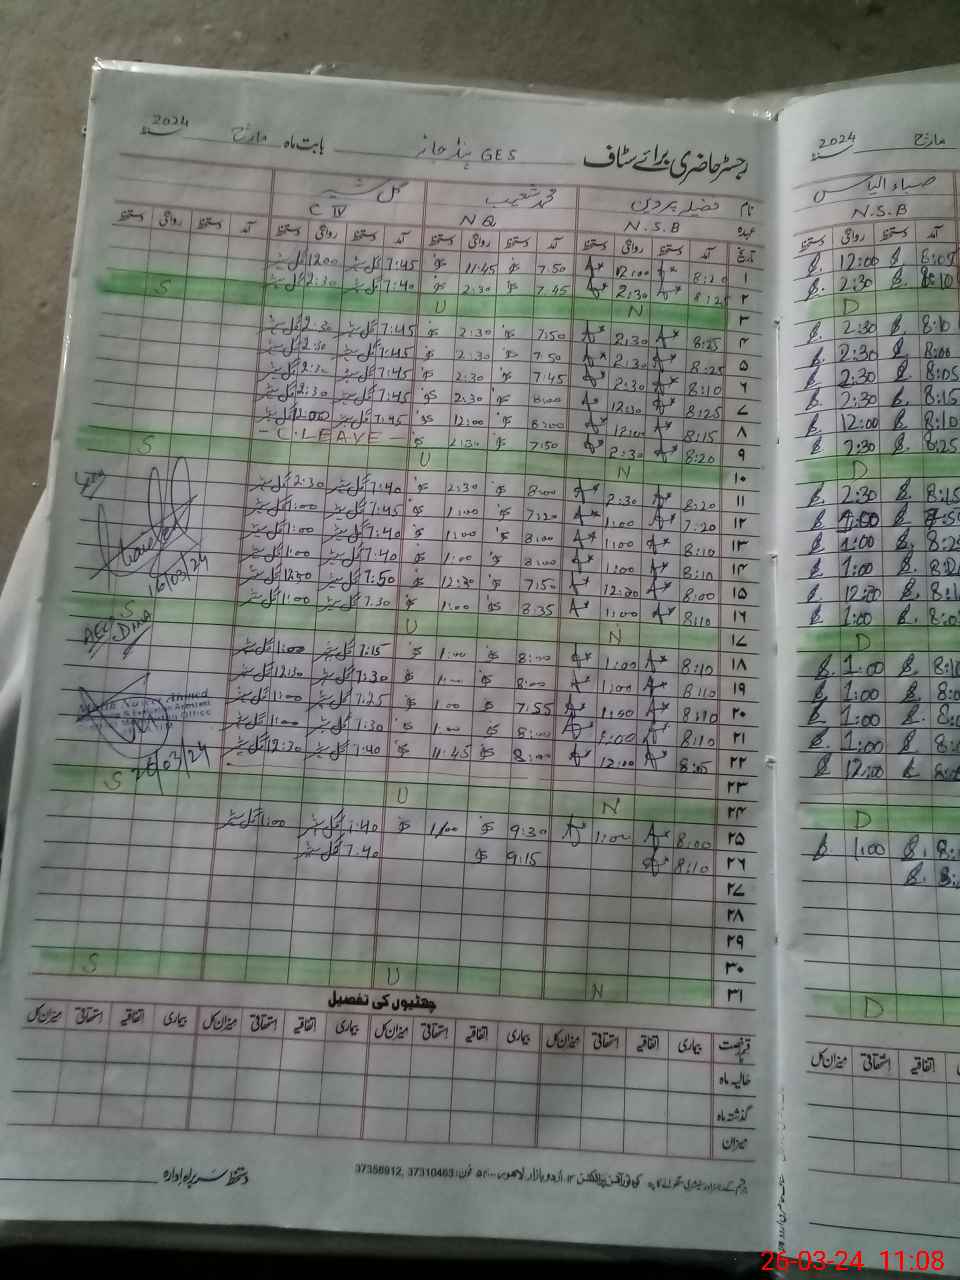 رجسٹر حاضری برائے سٹاف GES بابت ماہ مارچ 2024
نام محمد شعیب گل شیر
عہدہ N.S.B N Q C IV
تاریخ آمد دستخط روانگی دستخط آمد دستخط روانگی دستخط آمد دستخط روانگی دستخط آمد دستخط روانگی دستخط
۱ 8:20 12:00 7:50 11:45 7:45 گل شیر 12:00 گل شیر
۲ 8:25 2:30 7:45 2:30 7:40 گل شیر 2:30 گل شیر
۳ N U S
۴ 8:25 2:30 7:50 2:30 7:45 گل شیر 2:30 گل شیر
۵ 8:25 2:30 7:50 2:30 7:45 گل شیر 2:30 گل شیر
۶ 8:10 2:30 7:45 2:30 7:45 گل شیر 2:30 گل شیر
۷ 8:25 12:30 8:00 2:30 7:45 گل شیر 2:30 گل شیر
۸ 8:15 12:00 8:00 12:00 7:45 گل شیر 12:00 گل شیر
۹ 8:20 2:30 7:50 2:30 - C.LEAVE -
۱۰ N U S
۱۱ 8:20 2:30 8:00 2:30 7:40 گل شیر 2:30 گل شیر
۱۲ 7:20 1:00 7:20 1:00 7:45 گل شیر 1:00 گل شیر
۱۳ 8:10 1:00 8:00 1:00 7:40 گل شیر 1:00 گل شیر
۱۴ 8:10 1:00 8:00 1:00 7:40 گل شیر 1:00 گل شیر
۱۵ 8:00 12:30 7:50 12:30 7:50 گل شیر 12:30 گل شیر
۱۶ 8:10 1:00 8:35 1:00 7:30 گل شیر 1:00 گل شیر
16/03/24
۱۷ N U S
۱۸ 8:10 1:00 8:00 1:00 7:15 گل شیر 1:00 گل شیر
۱۹ 8:10 1:00 8:00 1:00 7:30 گل شیر 12:30 گل شیر
۲۰ 8:10 1:00 7:55 1:00 7:25 گل شیر 1:00 گل شیر
۲۱ 8:10 1:00 8:00 1:00 7:30 گل شیر 1:00 گل شیر
۲۲ 8:05 12:00 8:00 11:45 7:40 گل شیر 12:30 گل شیر
26/03/24
۲۳
۲۴ N U S
۲۵ 8:00 1:00 9:30 1:00 7:40 گل شیر 1:00 گل شیر
۲۶ 8:10 9:15 7:40 گل شیر
۲۷
۲۸
۲۹
۳۰
۳۱ N U S
چھٹیوں کی تفصیل
قسم رخصت بیماری اتفاقیہ استحقاقی میزان کل بیماری اتفاقیہ استحقاقی میزان کل بیماری اتفاقیہ استحقاقی میزان کل بیماری اتفاقیہ استحقاقی میزان کل
حالیہ ماہ
گذشتہ ماہ
میزان
اُردو بازار، لاہور۔ فون: 37310463, 37356912
دستخط سربراہ ادارہ
مارچ 2024
صباء الیاس
N.S.B
آمد دستخط روانگی دستخط
8:05 12:00
8:10 2:30
D
8:10 2:30
8:00 2:30
8:05 2:30
8:15 2:30
8:10 12:00
8:25 2:30
D
8:15 2:30
1:00
1:00
1:00
12:30
1:00
D
1:00
1:00
1:00
1:00
12:00
D
1:00
D
اتفاقیہ استحقاقی میزان کل
26-03-24 11:08